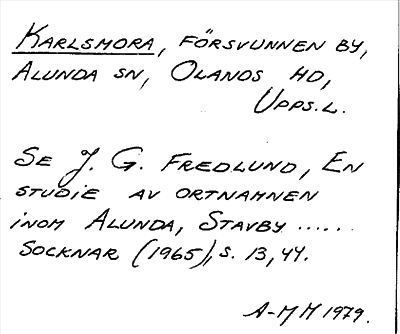 Karlsmora, försvunnen by,
Alunda sn, Olands hd,
Upps.l.
Se J. G. Fredlund, En
studie av ortnamnen
inom Alunda, Stavby ......
socknar (1965), s. 13, 44.
A-M M 1979.